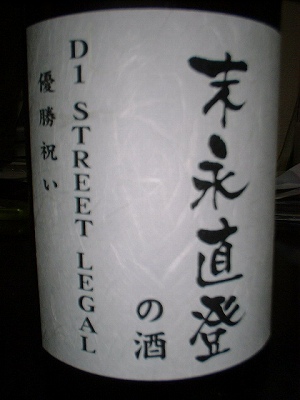 末永直登
の酒
D1 STREET LEGAL
優勝祝い